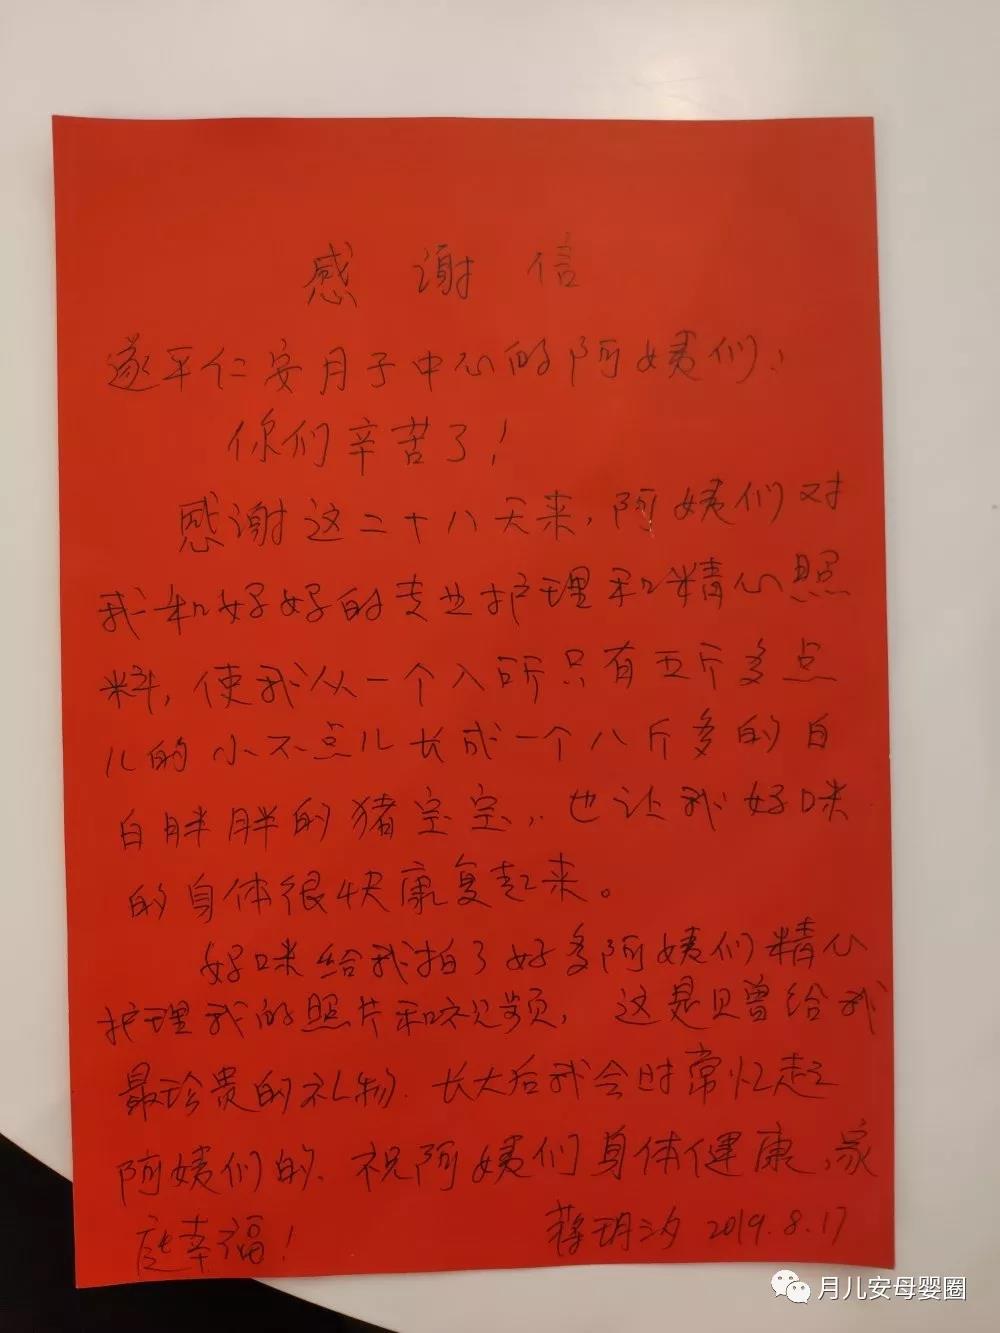 感谢信
遂平仁安月子中心的阿姨们:
你们辛苦了!
感谢这二十八天来,阿姨们对
我和好好的专业护理和精心照
料,使我从一个入所只有五斤多点
儿的小不点儿长成一个八斤多的白
白胖胖的猪宝宝,也让我好咪
的身体很快康复起来。
好咪给我拍了好多阿姨们精心
护理我的照片和视频,这是赠给我
最珍贵的礼物.长大后我会时常忆起
阿姨们的.祝阿姨们身体健康,家
庭幸福!
蒋玥汐 2019.8.17
月儿安母婴圈